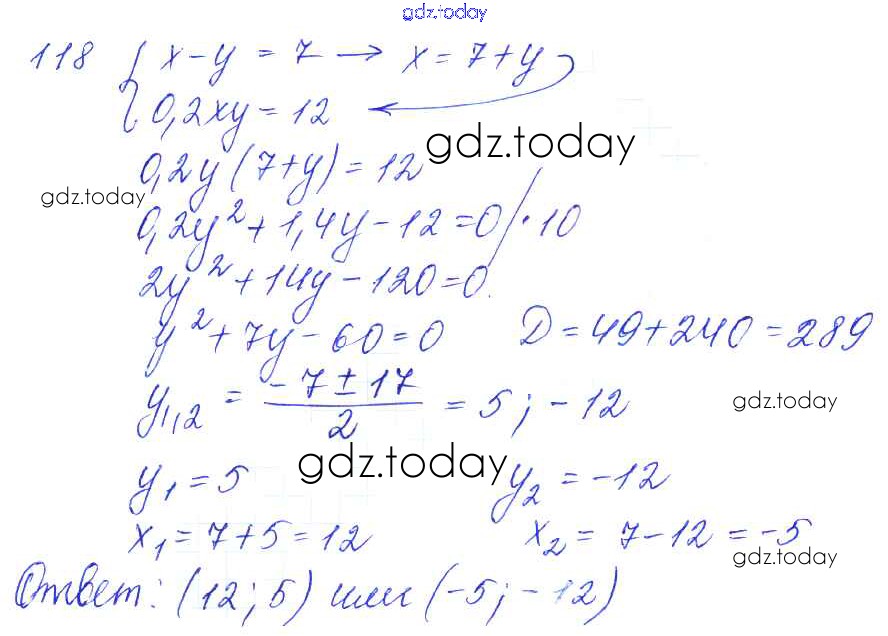 gdz.today
118 { x - y = 7 → x = 7 + y
0,2xy = 12
gdz.today
0,2y (7+y) = 12
gdz.today
0,2y² + 1,4y - 12 = 0 / · 10
2y² + 14y - 120 = 0
y² + 7y - 60 = 0 D = 49 + 240 = 289
y₁,₂ = (-7 ± 17)/2 = 5 ; -12
gdz.today
gdz.today
y₁ = 5 y₂ = -12
x₁ = 7 + 5 = 12 x₂ = 7 - 12 = -5
gdz.today
Ответ: (12; 5) или (-5; -12)